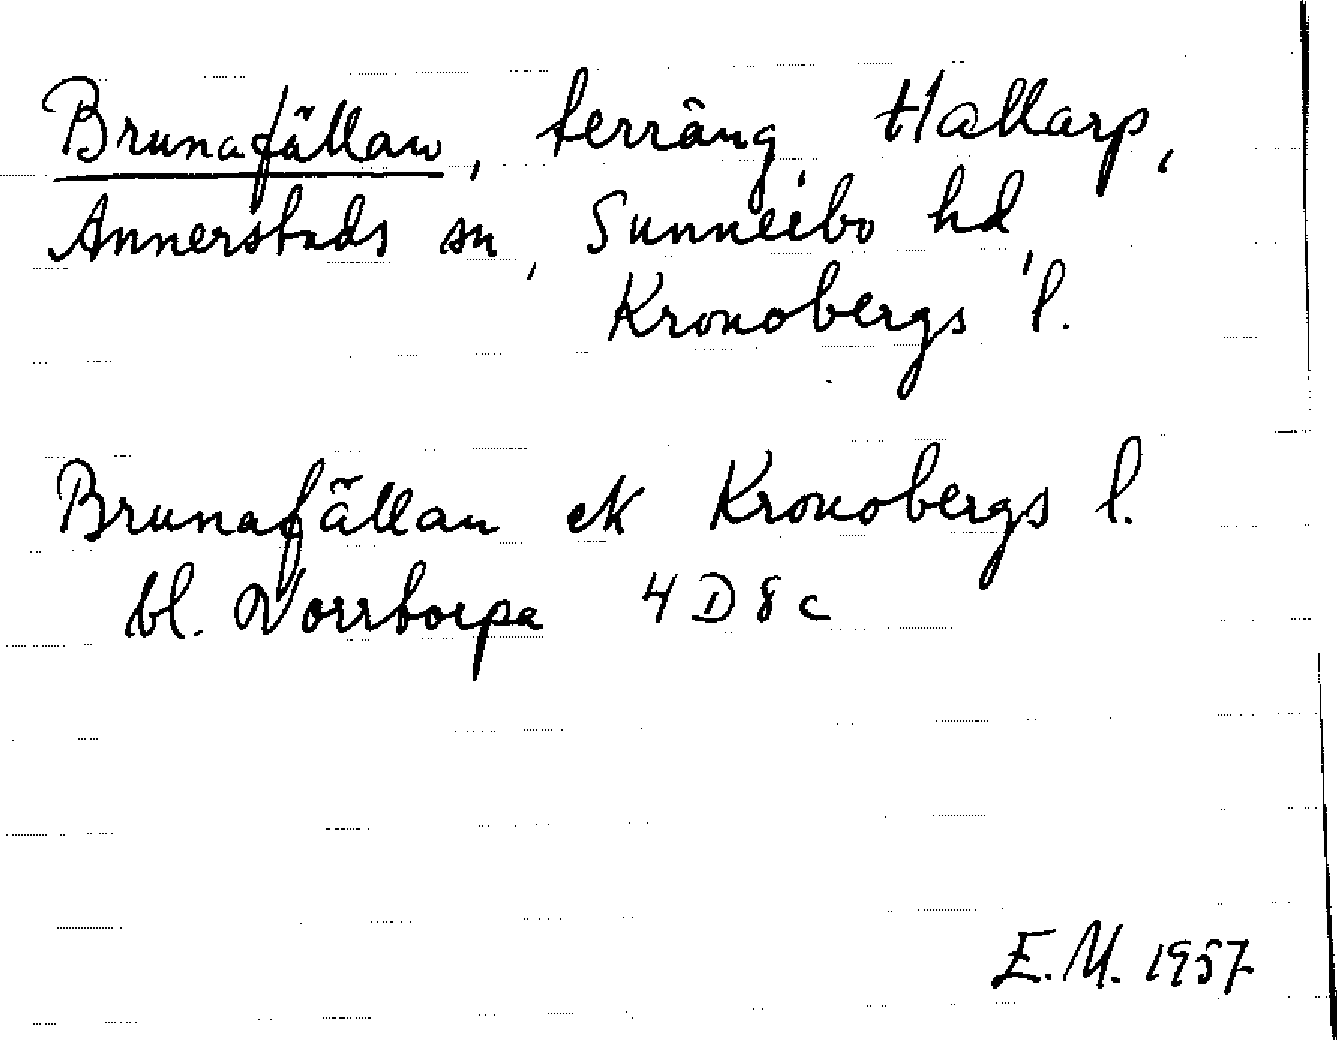 Brunafällan, terräng, Hallarp,
Annerstads sn, Sunneibo hd,
Kronobergs l.
Brunafällan ek Kronobergs l.
bl. Norrtorpa 4D8c
E.M. 1957